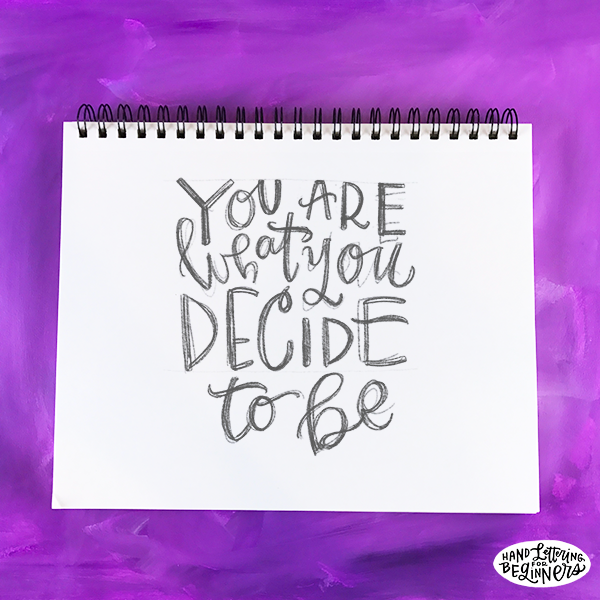 YOU ARE
what you
DECIDE
to be
HAND Lettering
FOR
BEGINNERS